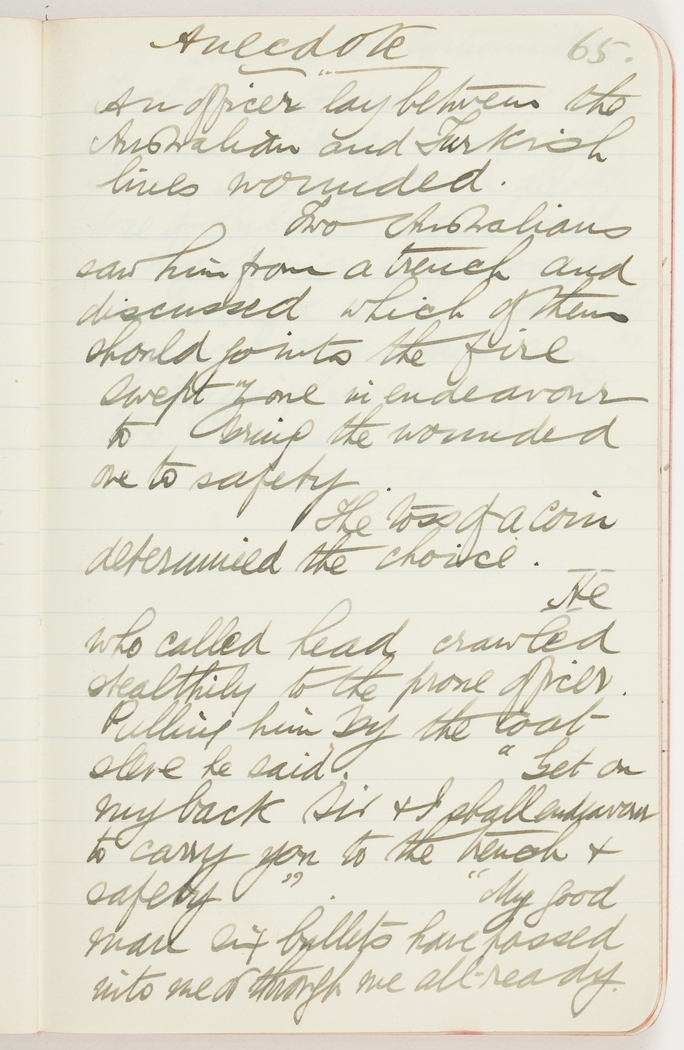 Anecdote 65.
An officer lay between the
Australian and Turkish
lines wounded.
Two Australians
saw him from a trench and
discussed which of them
should go into the fire
swept zone in endeavour
to bring the wounded
one to safety.
The toss of a coin
determined the choice.
He
who called head crawled
stealthily to the prone officer.
Pulling him by the coat
sleve he said. "Get on
my back Sir & I shall endeavour
to carry you to the trench &
safety". "My good
man six bullets have passed
into me or through me all-ready.